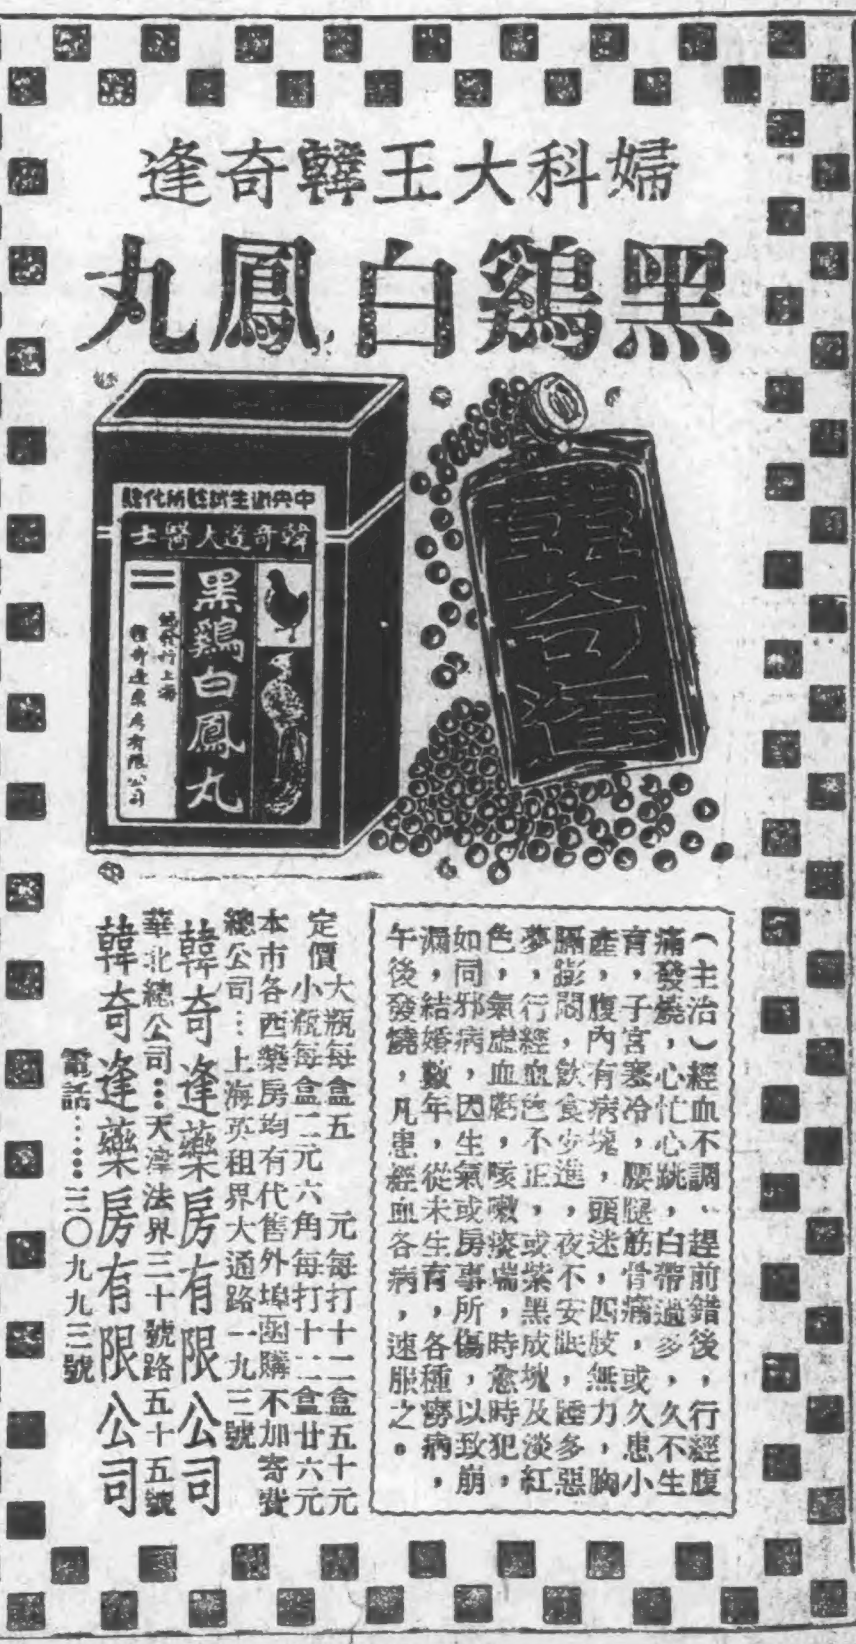 婦科大王韓奇逢
黑鷄白鳳丸
中央衛生試驗所化驗
韓奇逢大醫士
黑鷄白鳳丸
總發行上海
韓奇逢藥房有限公司
韓奇逢
(主治)經血不調、趕前錯後，行經腹
痛發燒，心忙心跳，白帶過多，久不生
育，子宮寒冷，腰腿筋骨痛，或久患小
產，腹內有病塊，頭迷，四肢無力，胸
膈膨悶，飲食少進，夜不安眠，睡多惡
夢，行經血色不正，或紫黑成塊及淡紅
色，氣虛血虧，咳嗽痰喘，時愈時犯，
如同邪病，因生氣或房事所傷，以致崩
漏，結婚數年，從未生育，各種癆病，
午後發燒，凡患經血各病，速服之。
定價
大瓶每盒五元每打十二盒五十元
小瓶每盒二元六角每打十二盒廿六元
本市各西藥房均有代售外埠函購不加寄費
總公司…上海英租界大通路一九三號
韓奇逢藥房有限公司
華北總公司…天津法界三十號路五十五號
韓奇逢藥房有限公司
電話……三〇九九三號